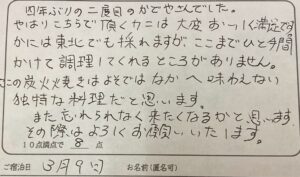 四年ぶりの二度目のかどやさんでした。
やはりこちらで頂くカニは大変おいしく満足です
かには東北でも採れますが、ここまでひと手間
かけて調理してくれるところがありません。
この炭火焼きはよそではなかなか味わえない
独特な料理だと思います。
また忘れられなく来たくなるかと思います
その際はよろしくお願いいたします。
10点満点で 8 点
ご宿泊日 3月9日 お名前(匿名可)